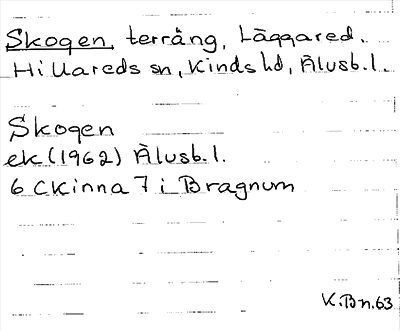 Skogen, terräng, Läggared.
Hillareds sn, Kinds hd, Älvsb.l.
Skogen
ek (1962) Älvsb.l.
6 C Kinna 7 i Bragnum
K.Bn.63